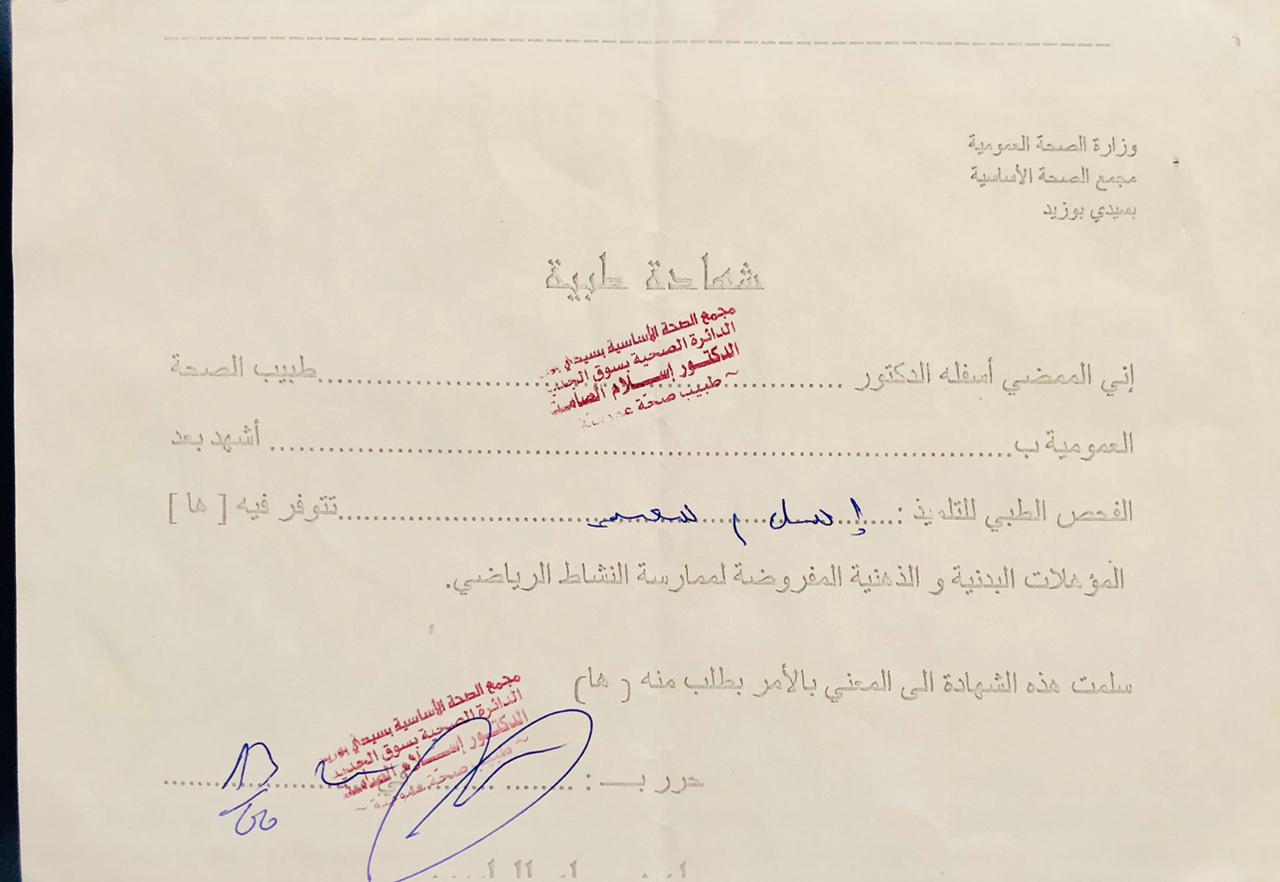 وزارة الصحة العمومية
مجمع الصحة الأساسية
بسيدي بوزيد
شهادة طبية
مجمع الصحة الأساسية بسيدي
الدائرة الصحية بسوق الجديد
الدكتور إسلام الصامت
طبيب صحة عمومية
إني الممضي أسفله الدكتور ........................ طبيب الصحة
العمومية ب........................ أشهد بعد
الفحص الطبي للتلميذ : إسلام ........................ تتوفر فيه [ ها ]
المؤهلات البدنية و الذهنية المفروضة لممارسة النشاط الرياضي.
سلمت هذه الشهادة الى المعني بالأمر بطلب منه ( ها)
مجمع الصحة الأساسية بسيدي بوزيد
الدائرة الصحية بسوق الجديد
الدكتور إسلام الصامت
طبيب صحة عمومية
حرر بـ : ........................